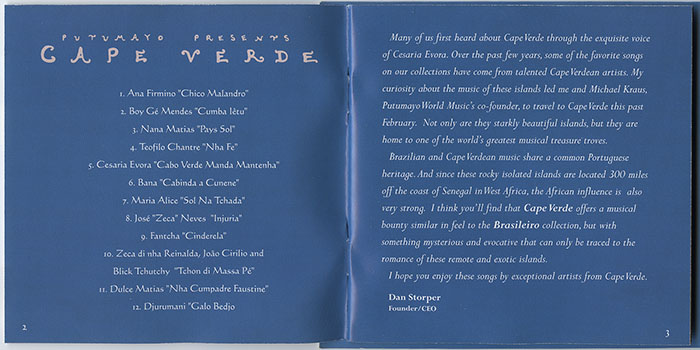 PUTUMAYO PRESENTS
CAPE VERDE
1. Ana Firmino "Chico Malandro"
2. Boy Gé Mendes "Cumba Iêtu"
3. Nana Matias "Pays Sol"
4. Teofilo Chantre "Nha Fe"
5. Cesaria Evora "Cabo Verde Manda Mantenha"
6. Bana "Cabinda a Cunene"
7. Maria Alice "Sol Na Tchada"
8. José "Zeca" Neves "Injuria"
9. Fantcha "Cinderela"
10. Zeca di nha Reinalda, João Cirilio and
Blick Tchutchy "Tchon di Massa Pé"
11. Dulce Matias "Nha Cumpadre Faustine"
12. Djurumani "Galo Bedjo
2
Many of us first heard about Cape Verde through the exquisite voice
of Cesaria Evora. Over the past few years, some of the favorite songs
on our collections have come from talented Cape Verdean artists. My
curiosity about the music of these islands led me and Michael Kraus,
Putumayo World Music's co-founder, to travel to Cape Verde this past
February. Not only are they starkly beautiful islands, but they are
home to one of the world's greatest musical treasure troves.
Brazilian and Cape Verdean music share a common Portuguese
heritage. And since these rocky isolated islands are located 300 miles
off the coast of Senegal in West Africa, the African influence is also
very strong. I think you'll find that Cape Verde offers a musical
bounty similar in feel to the Brasileiro collection, but with
something mysterious and evocative that can only be traced to the
romance of these remote and exotic islands.
I hope you enjoy these songs by exceptional artists from Cape Verde.
Dan Storper
Founder/CEO
3